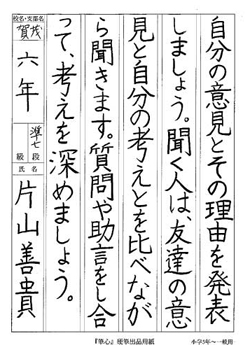 自分の意見とその理由を発表
しましょう。聞く人は、友達の意
見と自分の考えとを比べなが
ら聞きます。質問や助言をし合
って、考えを深めましょう。
校名・支部名
賀茂
六年
準七
段
級
氏名
片山善貴
『筆心』硬筆出品用紙
小学3年〜一般用